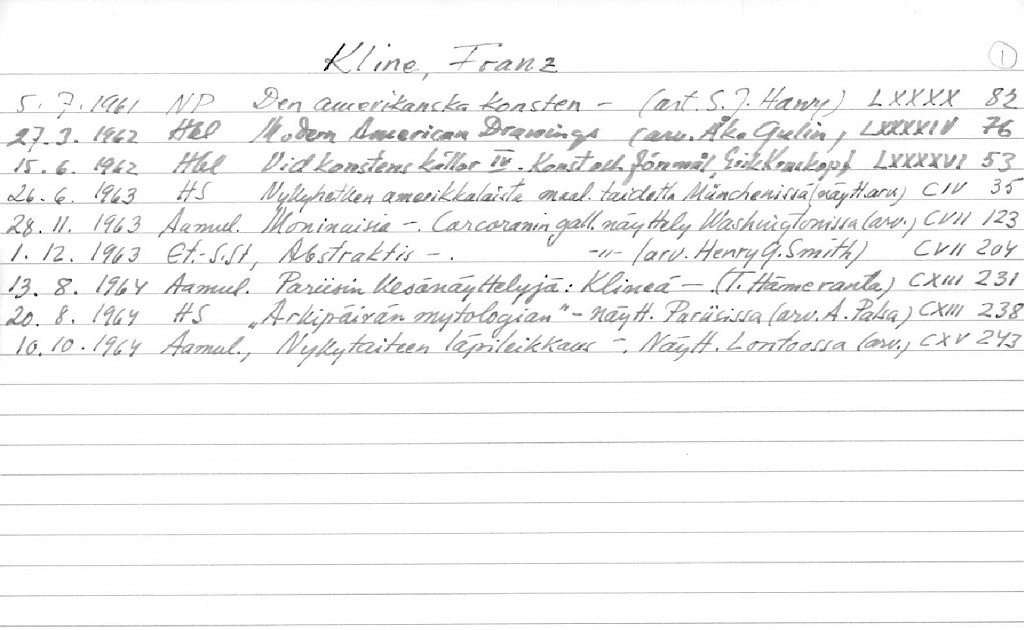 Kline, Franz
1
5.7.1961 NP Den amerikanska konsten – (art. S.J. Harry) LXXXX 82
27.3.1962 Hbl Modern American Drawings (arv. Åke Gulin) LXXXXIV 76
15.6.1962 Hbl Vid konstens källor IV. Konst och förmål, LXXXXVI 53
26.6.1963 HS Nykyhetken amerikkalaista maal. taidetta Münchenissä (näytt. arv.) CIV 35
28.11.1963 Aamul. Moninaisia –. Corcoranin gall. näyttely Washingtonissa (arv.) CVII 123
1.12.1963 Et.-S.St, Abstraktis –. -"- (arv. Henry G. Smith) CVII 204
13.8.1964 Aamul. Pariisin kesänäyttelyjä: Klineä –. (T. Hämeranta) CXIII 231
20.8.1964 HS "Arkipäivän mytologian" – näytt. Pariisissa (arv. A. Palsa) CXIII 238
10.10.1964 Aamul., Nykytaiteen läpileikkaus –. Näytt. Lontoossa (arv.) CXV 243